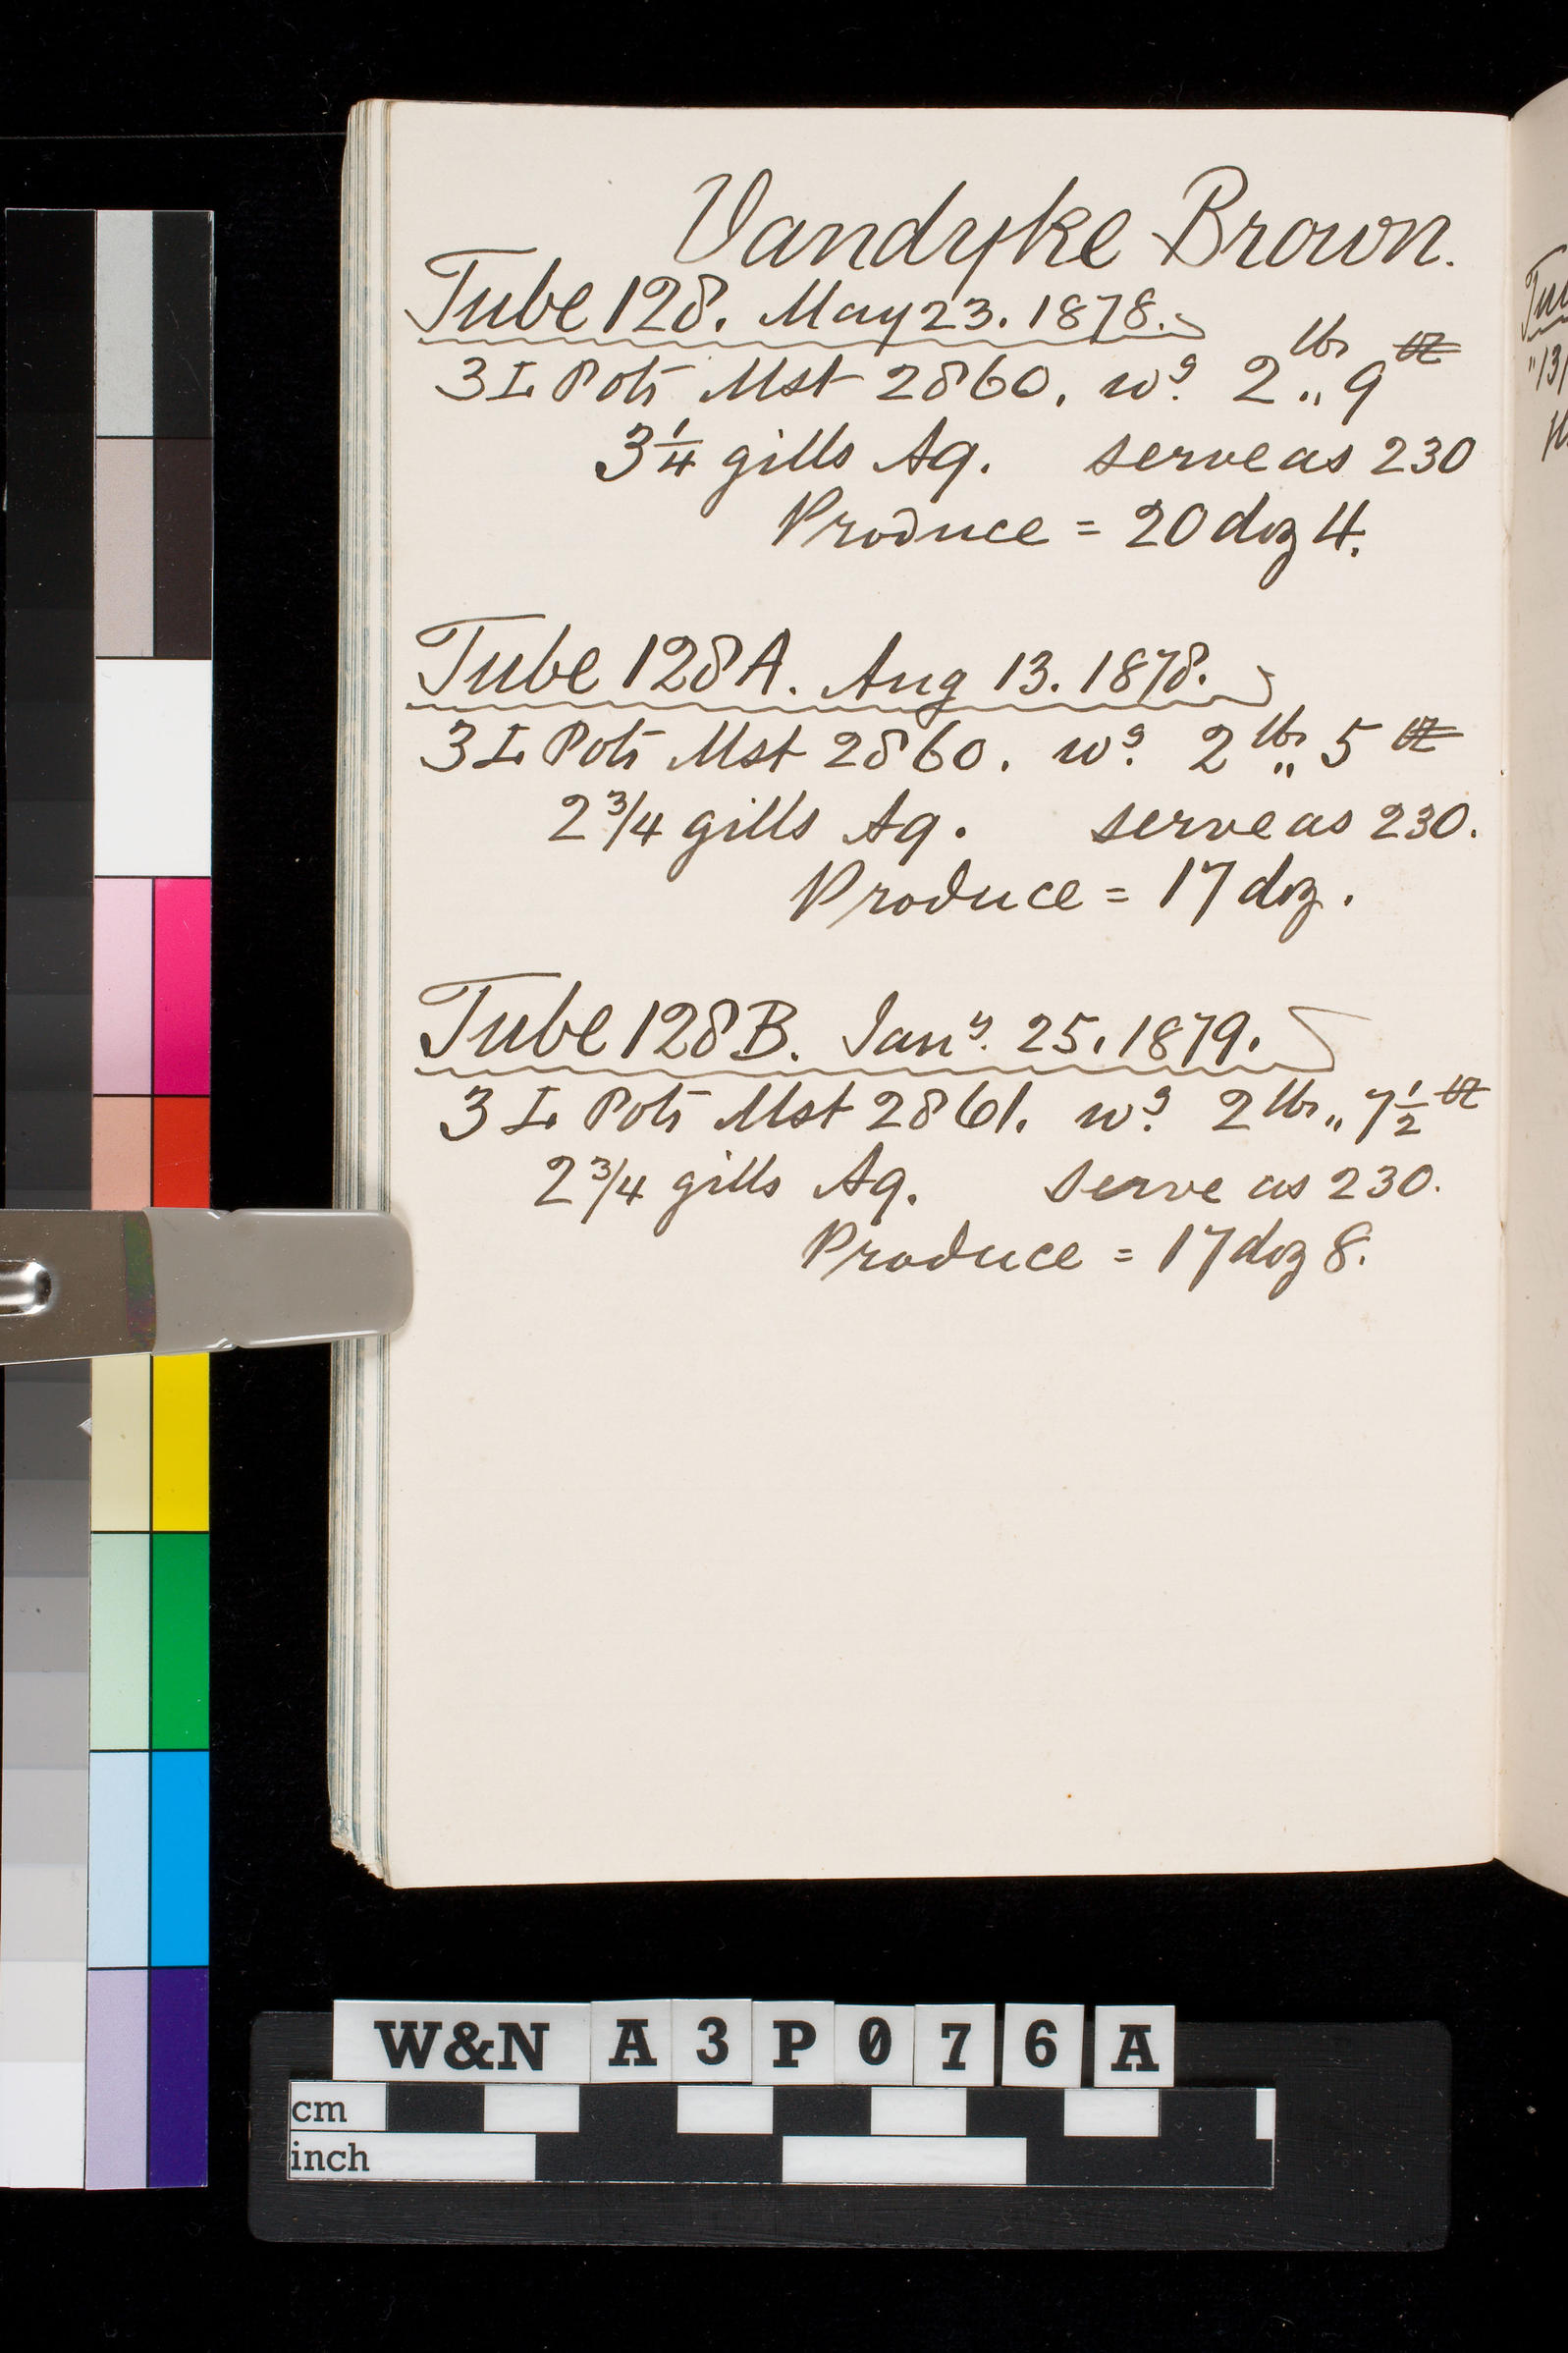 Vandyke Brown.
Tube 128. May 23. 1878.
3 L Pots Mst 2860. wg. 2 lbs „ 9 oz
3 1/4 gills Aq. serve as 230
Produce = 20 doz 4.
Tube 128A. Aug 13. 1878.
3 L Pots Mst 2860. wg. 2 lbs „ 5 oz
2 3/4 gills Aq. serve as 230.
Produce = 17 doz.
Tube 128B. Jany. 25. 1879.
3 L Pots Mst 2861. wg. 2 lbs „ 7 1/2 oz
2 3/4 gills Aq. serve as 230.
Produce = 17 doz 8.
W&N A3P076A
cm
inch